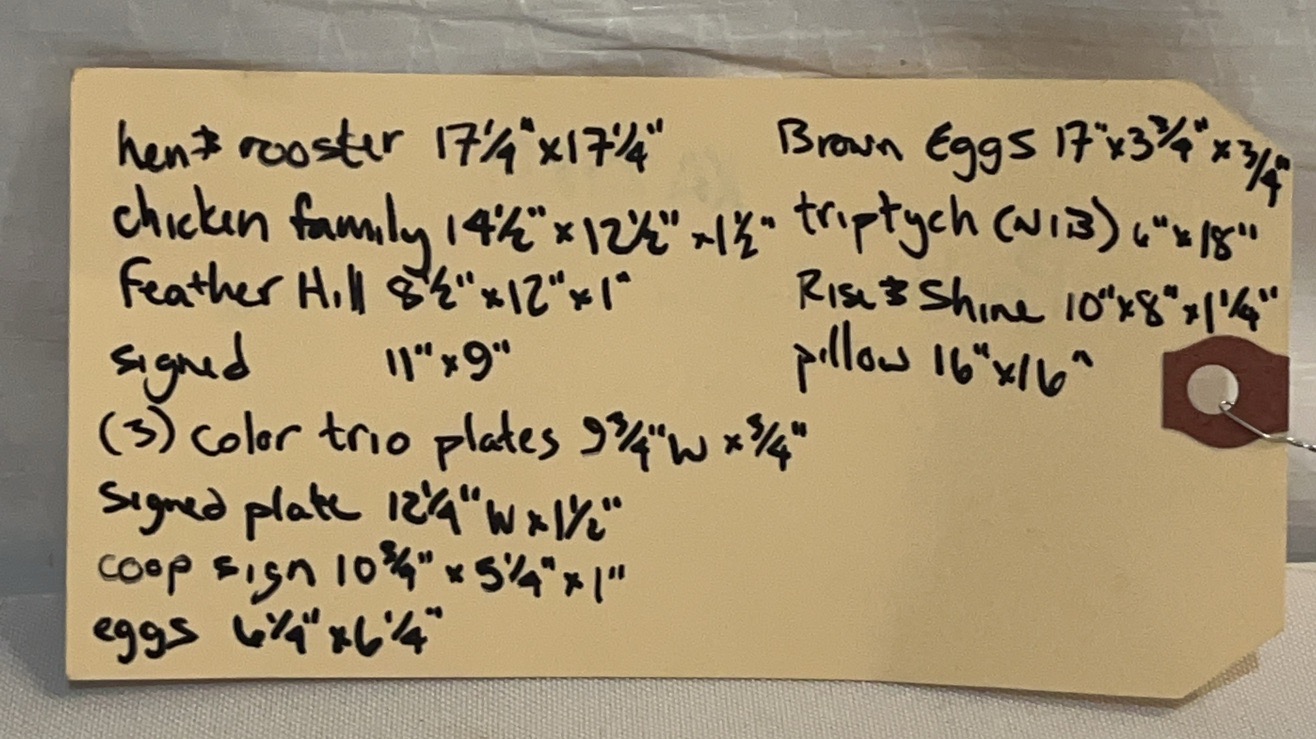 hen & rooster 17 1/4" x 17 1/4"
chicken family 14 1/2" x 12 1/2" x 1 1/2"
Feather Hill 8 1/2" x 12" x 1"
signed 11" x 9"
(3) color trio plates 9 3/4" W x 3/4"
Signed plate 12 1/4" W x 1 1/2"
coop sign 10 3/4" x 5 1/4" x 1"
eggs 6 1/4" x 6 1/4"
Brown Eggs 17" x 3 3/4" x 3/4"
triptych (NIB) 6" x 18"
Rise & Shine 10" x 8" x 1 1/4"
pillow 16" x 16"